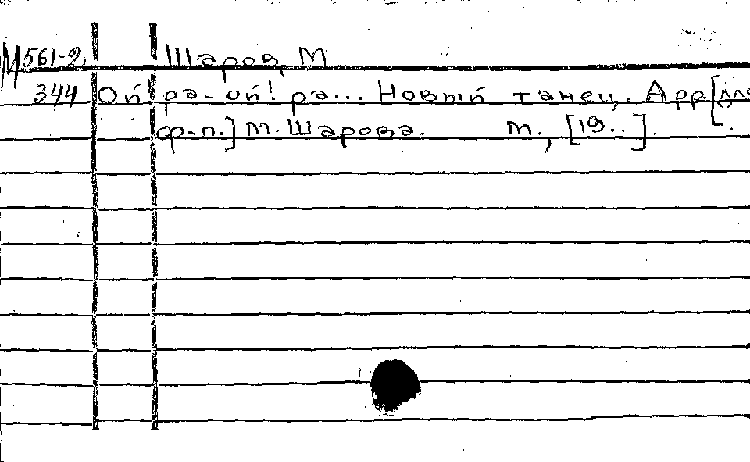 М561-2 Шаров, М
344 Ой ра-ой! ра... Новый танец. Арр[для
ф-п.] М. Шарова. М., [19..].